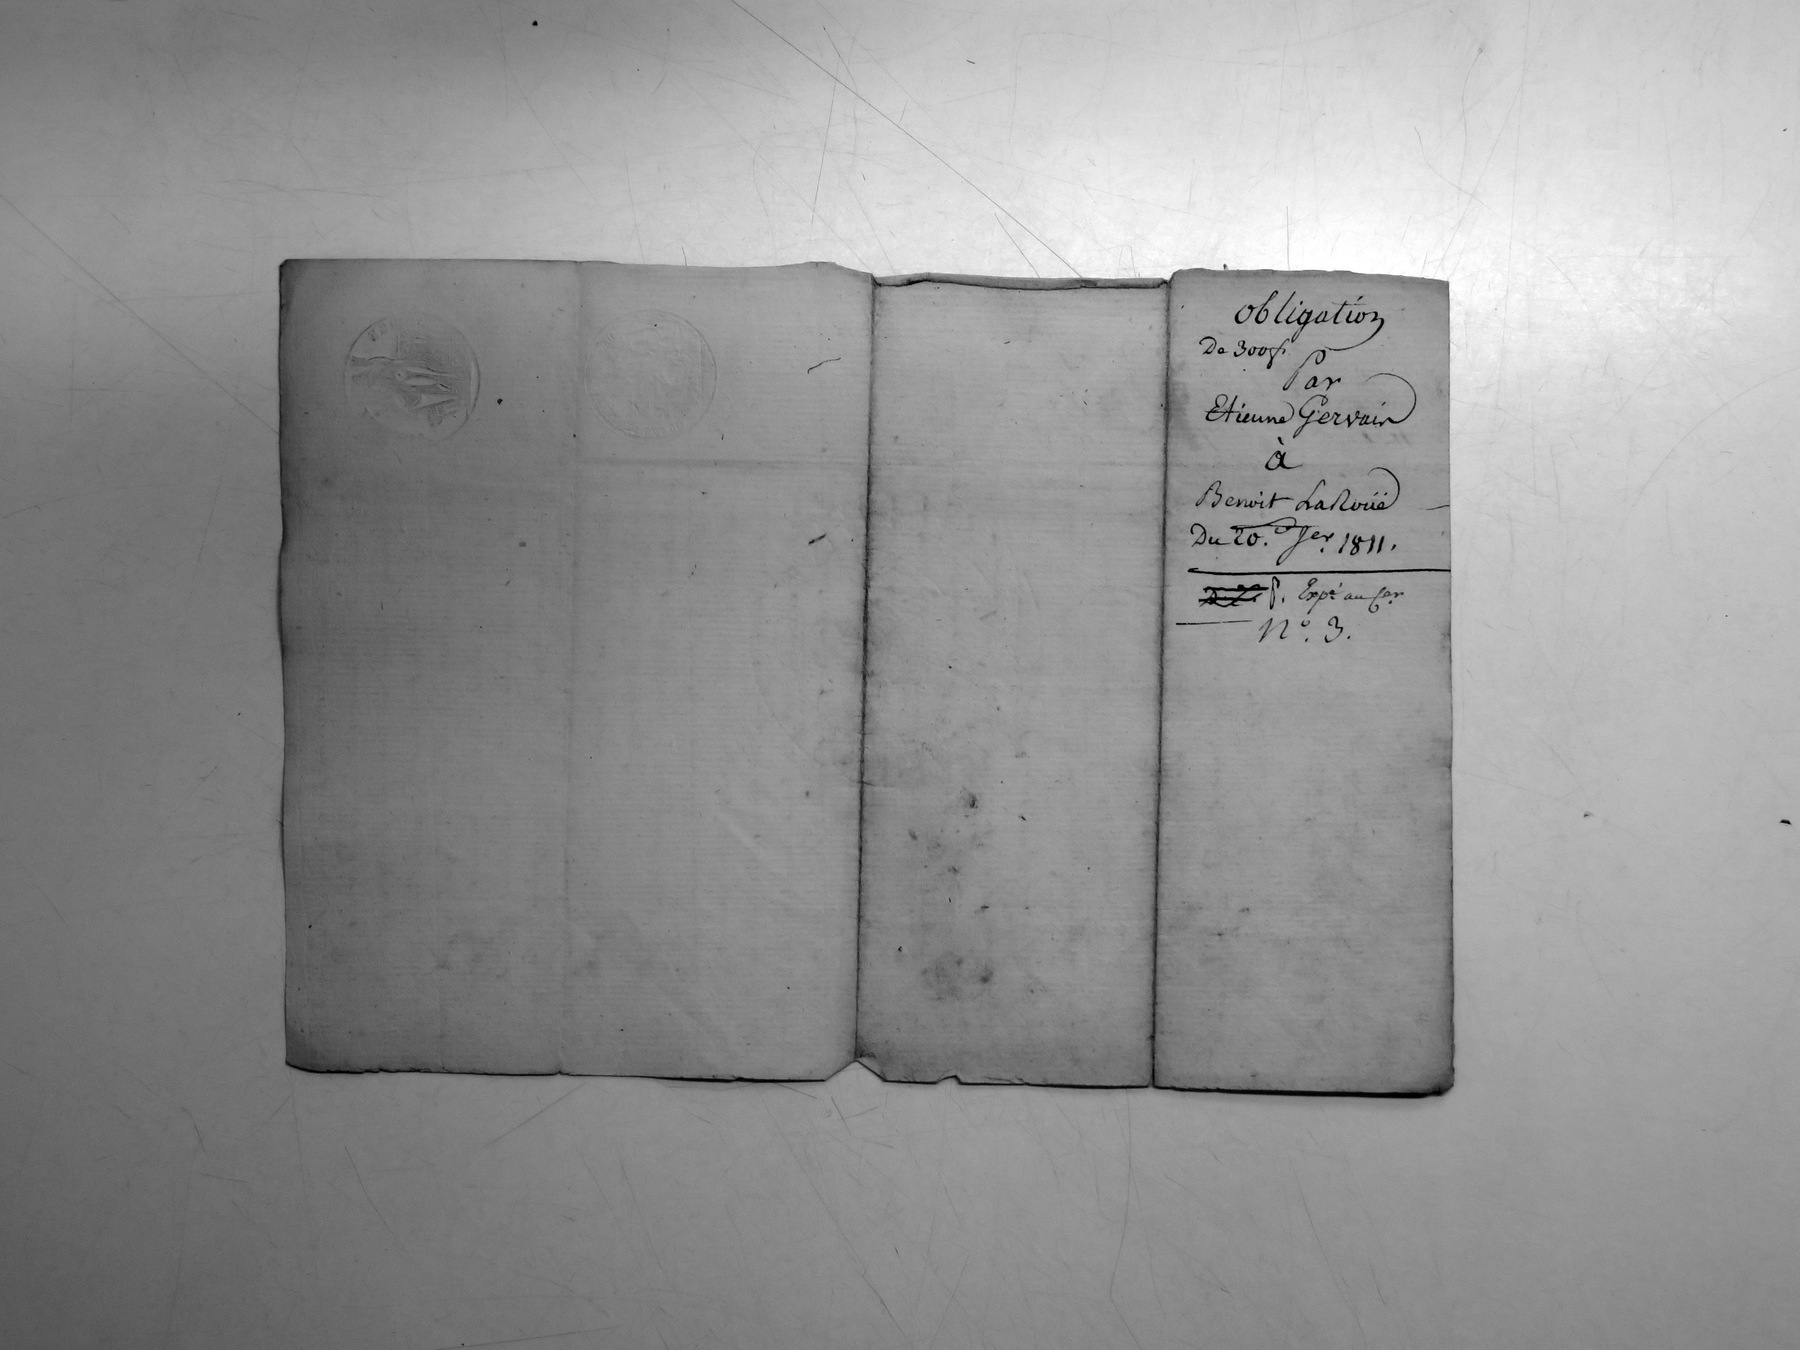 Obligation
De 300f.
Par
Etienne Gervais
à
Benoit LaRoüe
Du 20. Jer. 1811.
P. Expé au Cer
N°. 3.